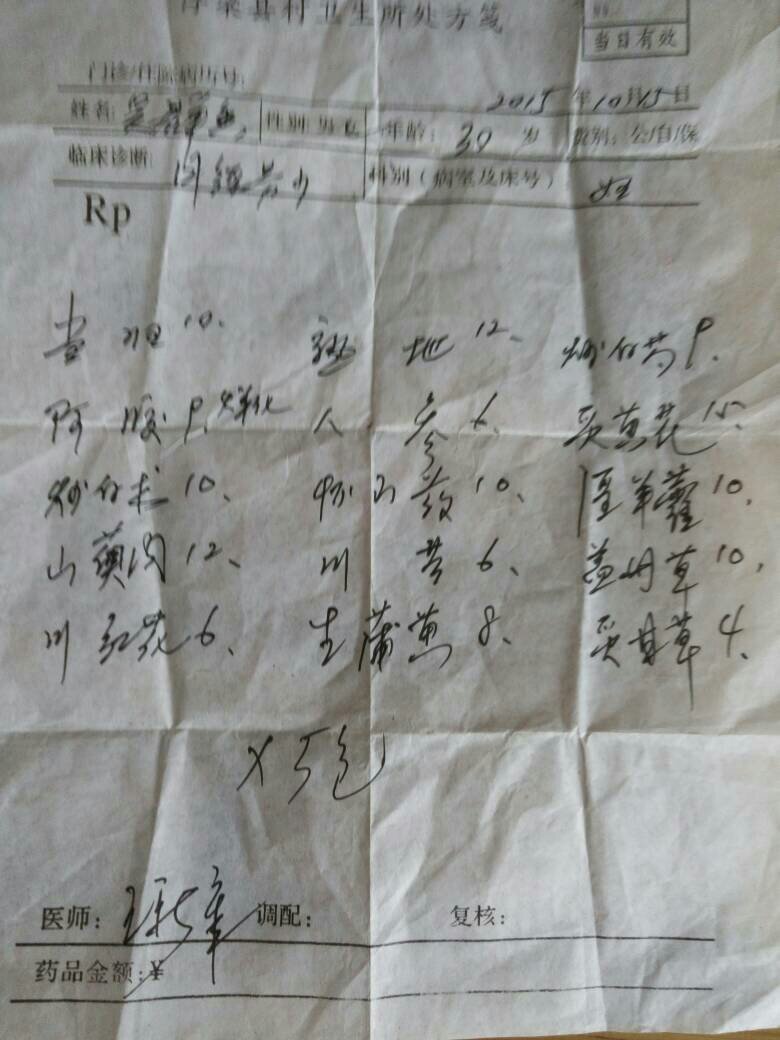 县村卫生所处方笺
当日有效
门诊/住院病历号:
姓名: 性别:男女 年龄: 30 岁 费别:公/自/保 2015年10月15日
临床诊断: 月经 科别(病室及床号)
Rp
当归10、 熟地12、 炒白芍9、
阿胶9、烊化 人参6、 15、
炒白术10、 怀山药10、 羊藿10、
山萸肉12、 川芎6、 益母草10、
川红花6、 生蒲黄8、 炙甘草4、
×5包
医师: 调配: 复核:
药品金额:¥